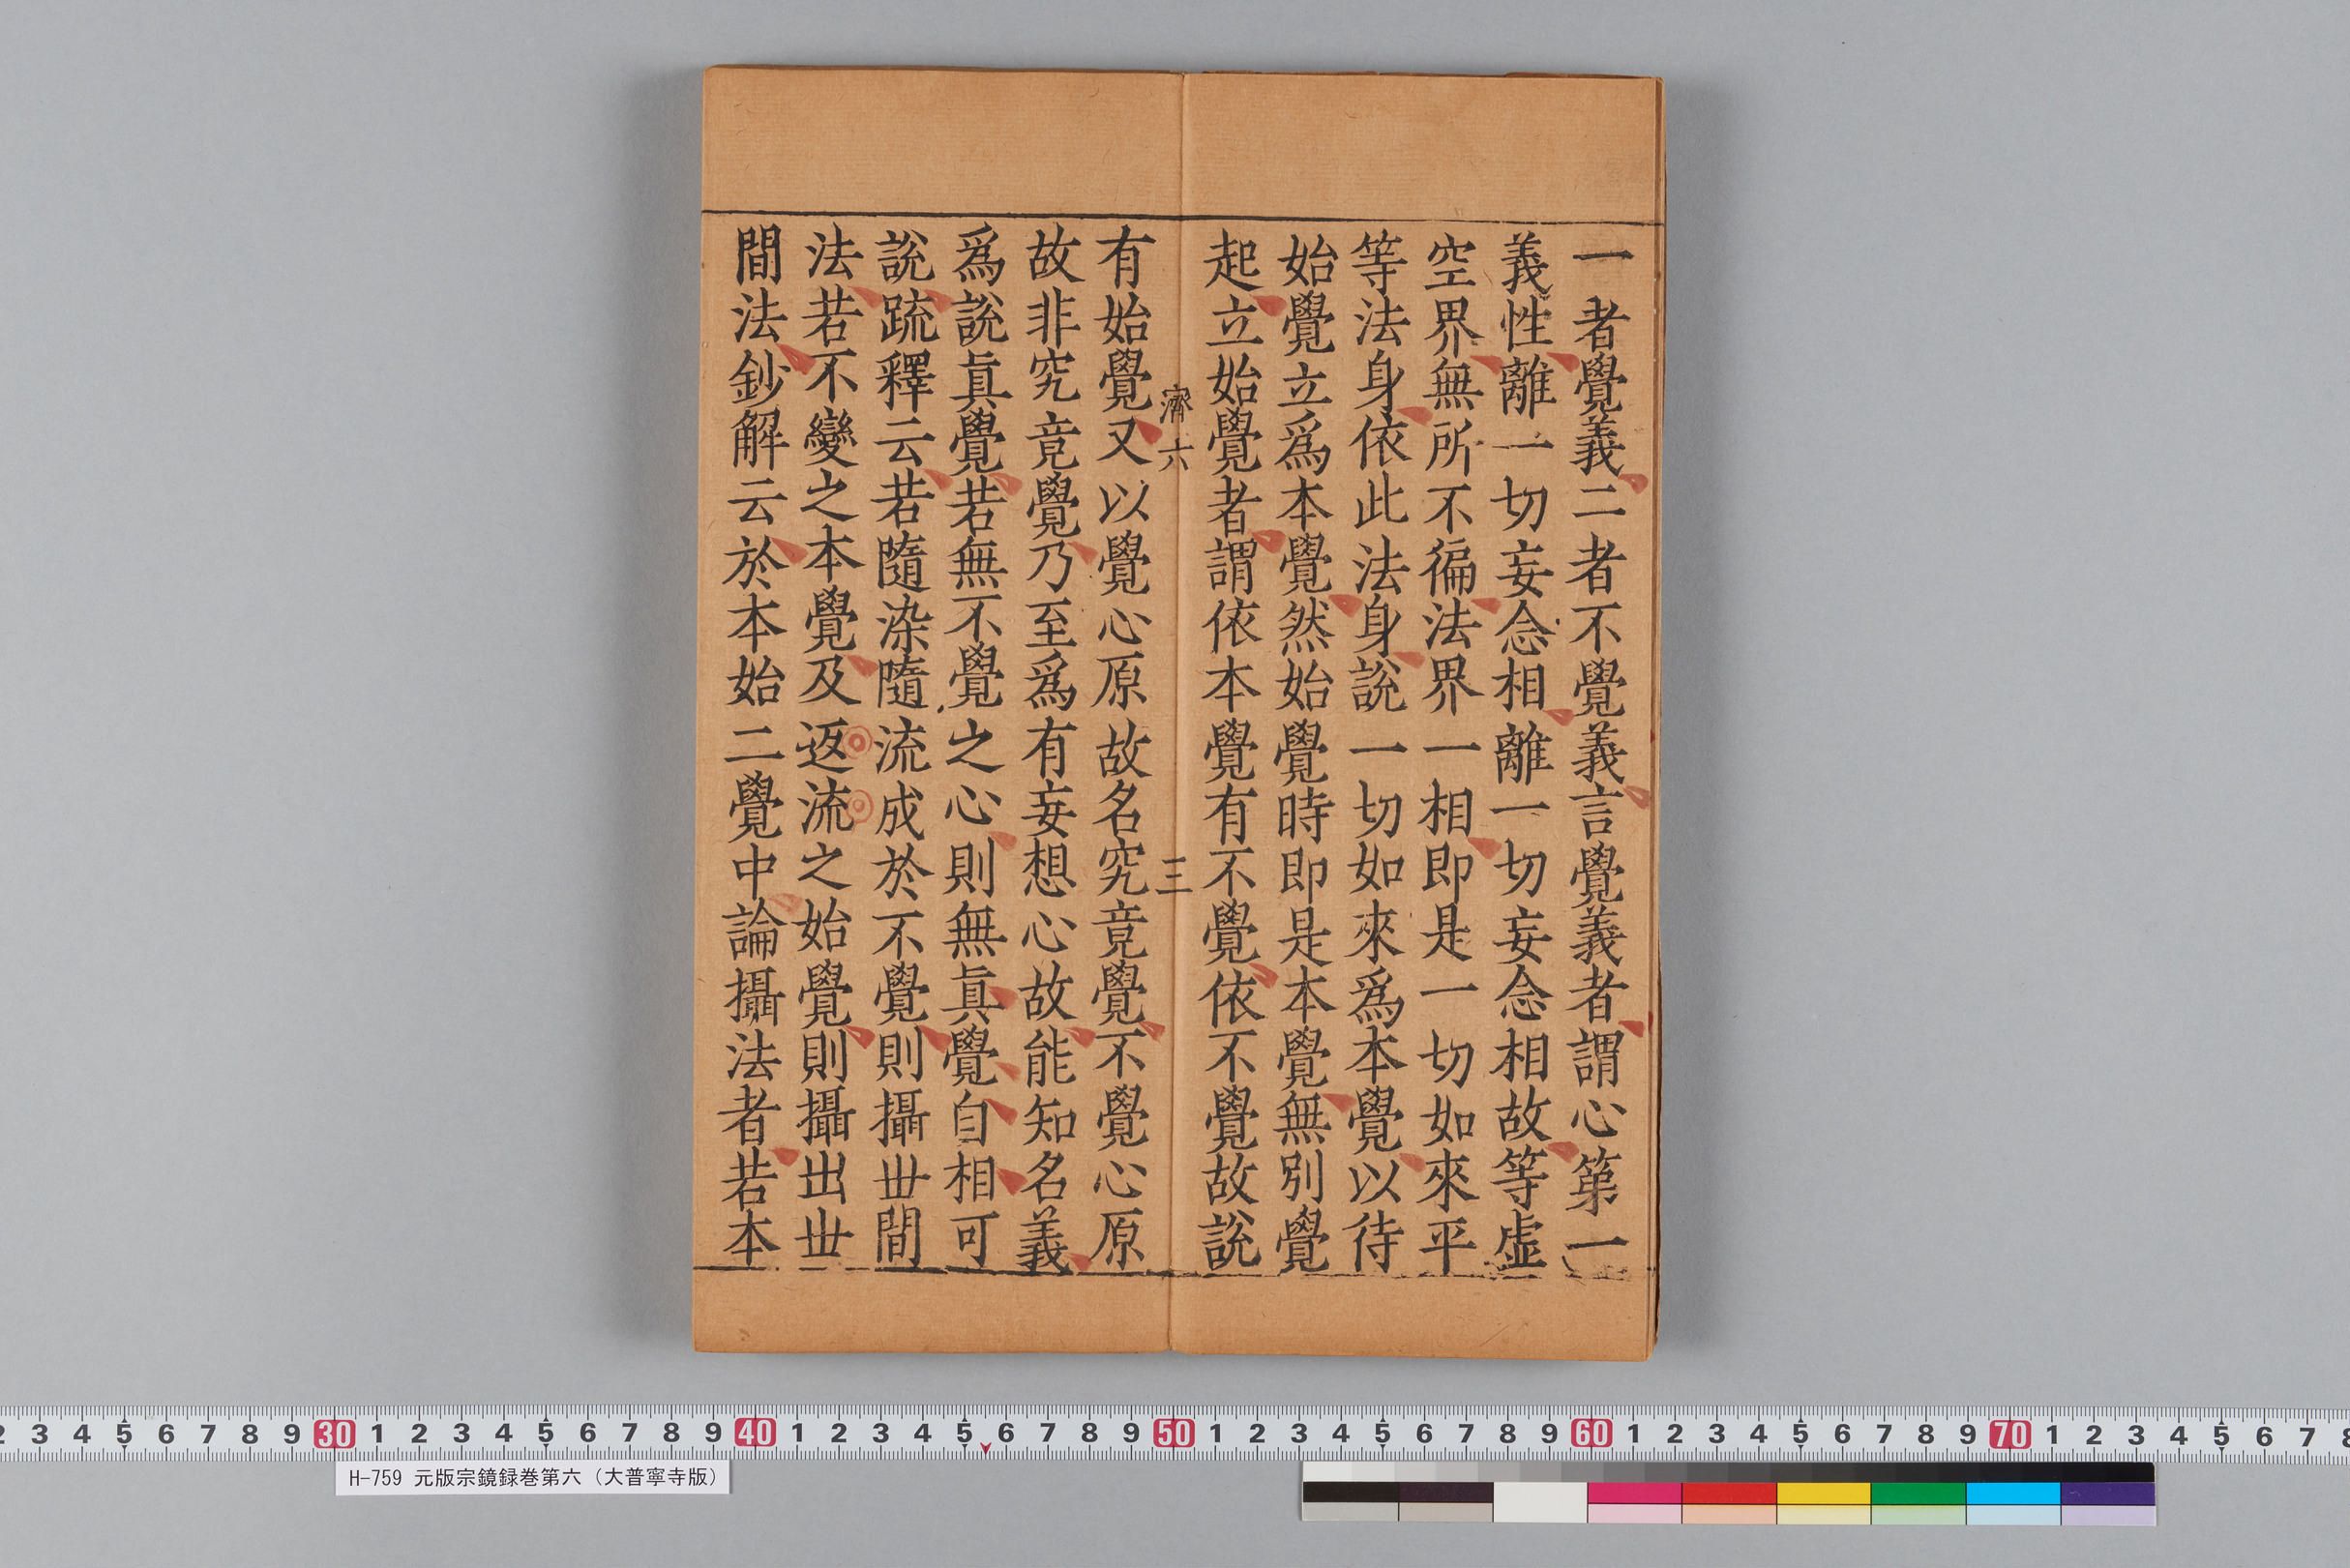 一者覺義二者不覺義言覺義者謂心第一
義性離一切妄念相離一切妄念相故等虛
空界無所不徧法界一相即是一切如來平
等法身依此法身說一切如來爲本覺以待
始覺立爲本覺然始覺時即是本覺無別覺
起立始覺者謂依本覺有不覺依不覺故說
濟六 三
有始覺又以覺心原故名究竟覺不覺心原
故非究竟覺乃至爲有妄想心故能知名義
爲說眞覺若無不覺之心則無眞覺自相可
說疏釋云若隨染隨流成於不覺則攝丗間
法若不變之本覺及返流之始覺則攝出丗
間法鈔解云於本始二覺中論攝法者若本
2 3 4 5 6 7 8 9 30 1 2 3 4 5 6 7 8 9 40 1 2 3 4 5 6 7 8 9 50 1 2 3 4 5 6 7 8 9 60 1 2 3 4 5 6 7 8 9 70 1 2 3 4 5 6 7 8
H-759 元版宗鏡録巻第六（大普寧寺版）